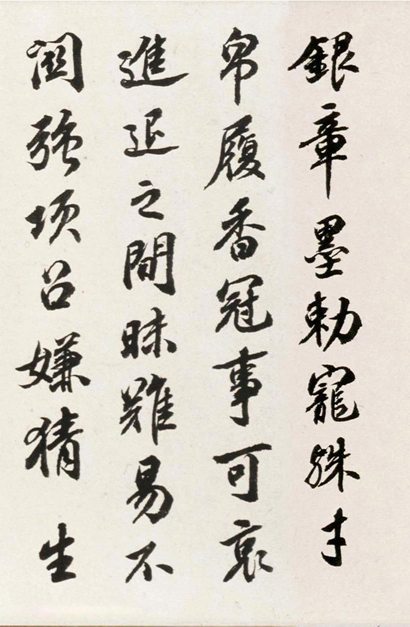 銀章墨勅寵殊才
帛履香冠事可哀
進退之間昧難易不
圖強項召嫌猜生